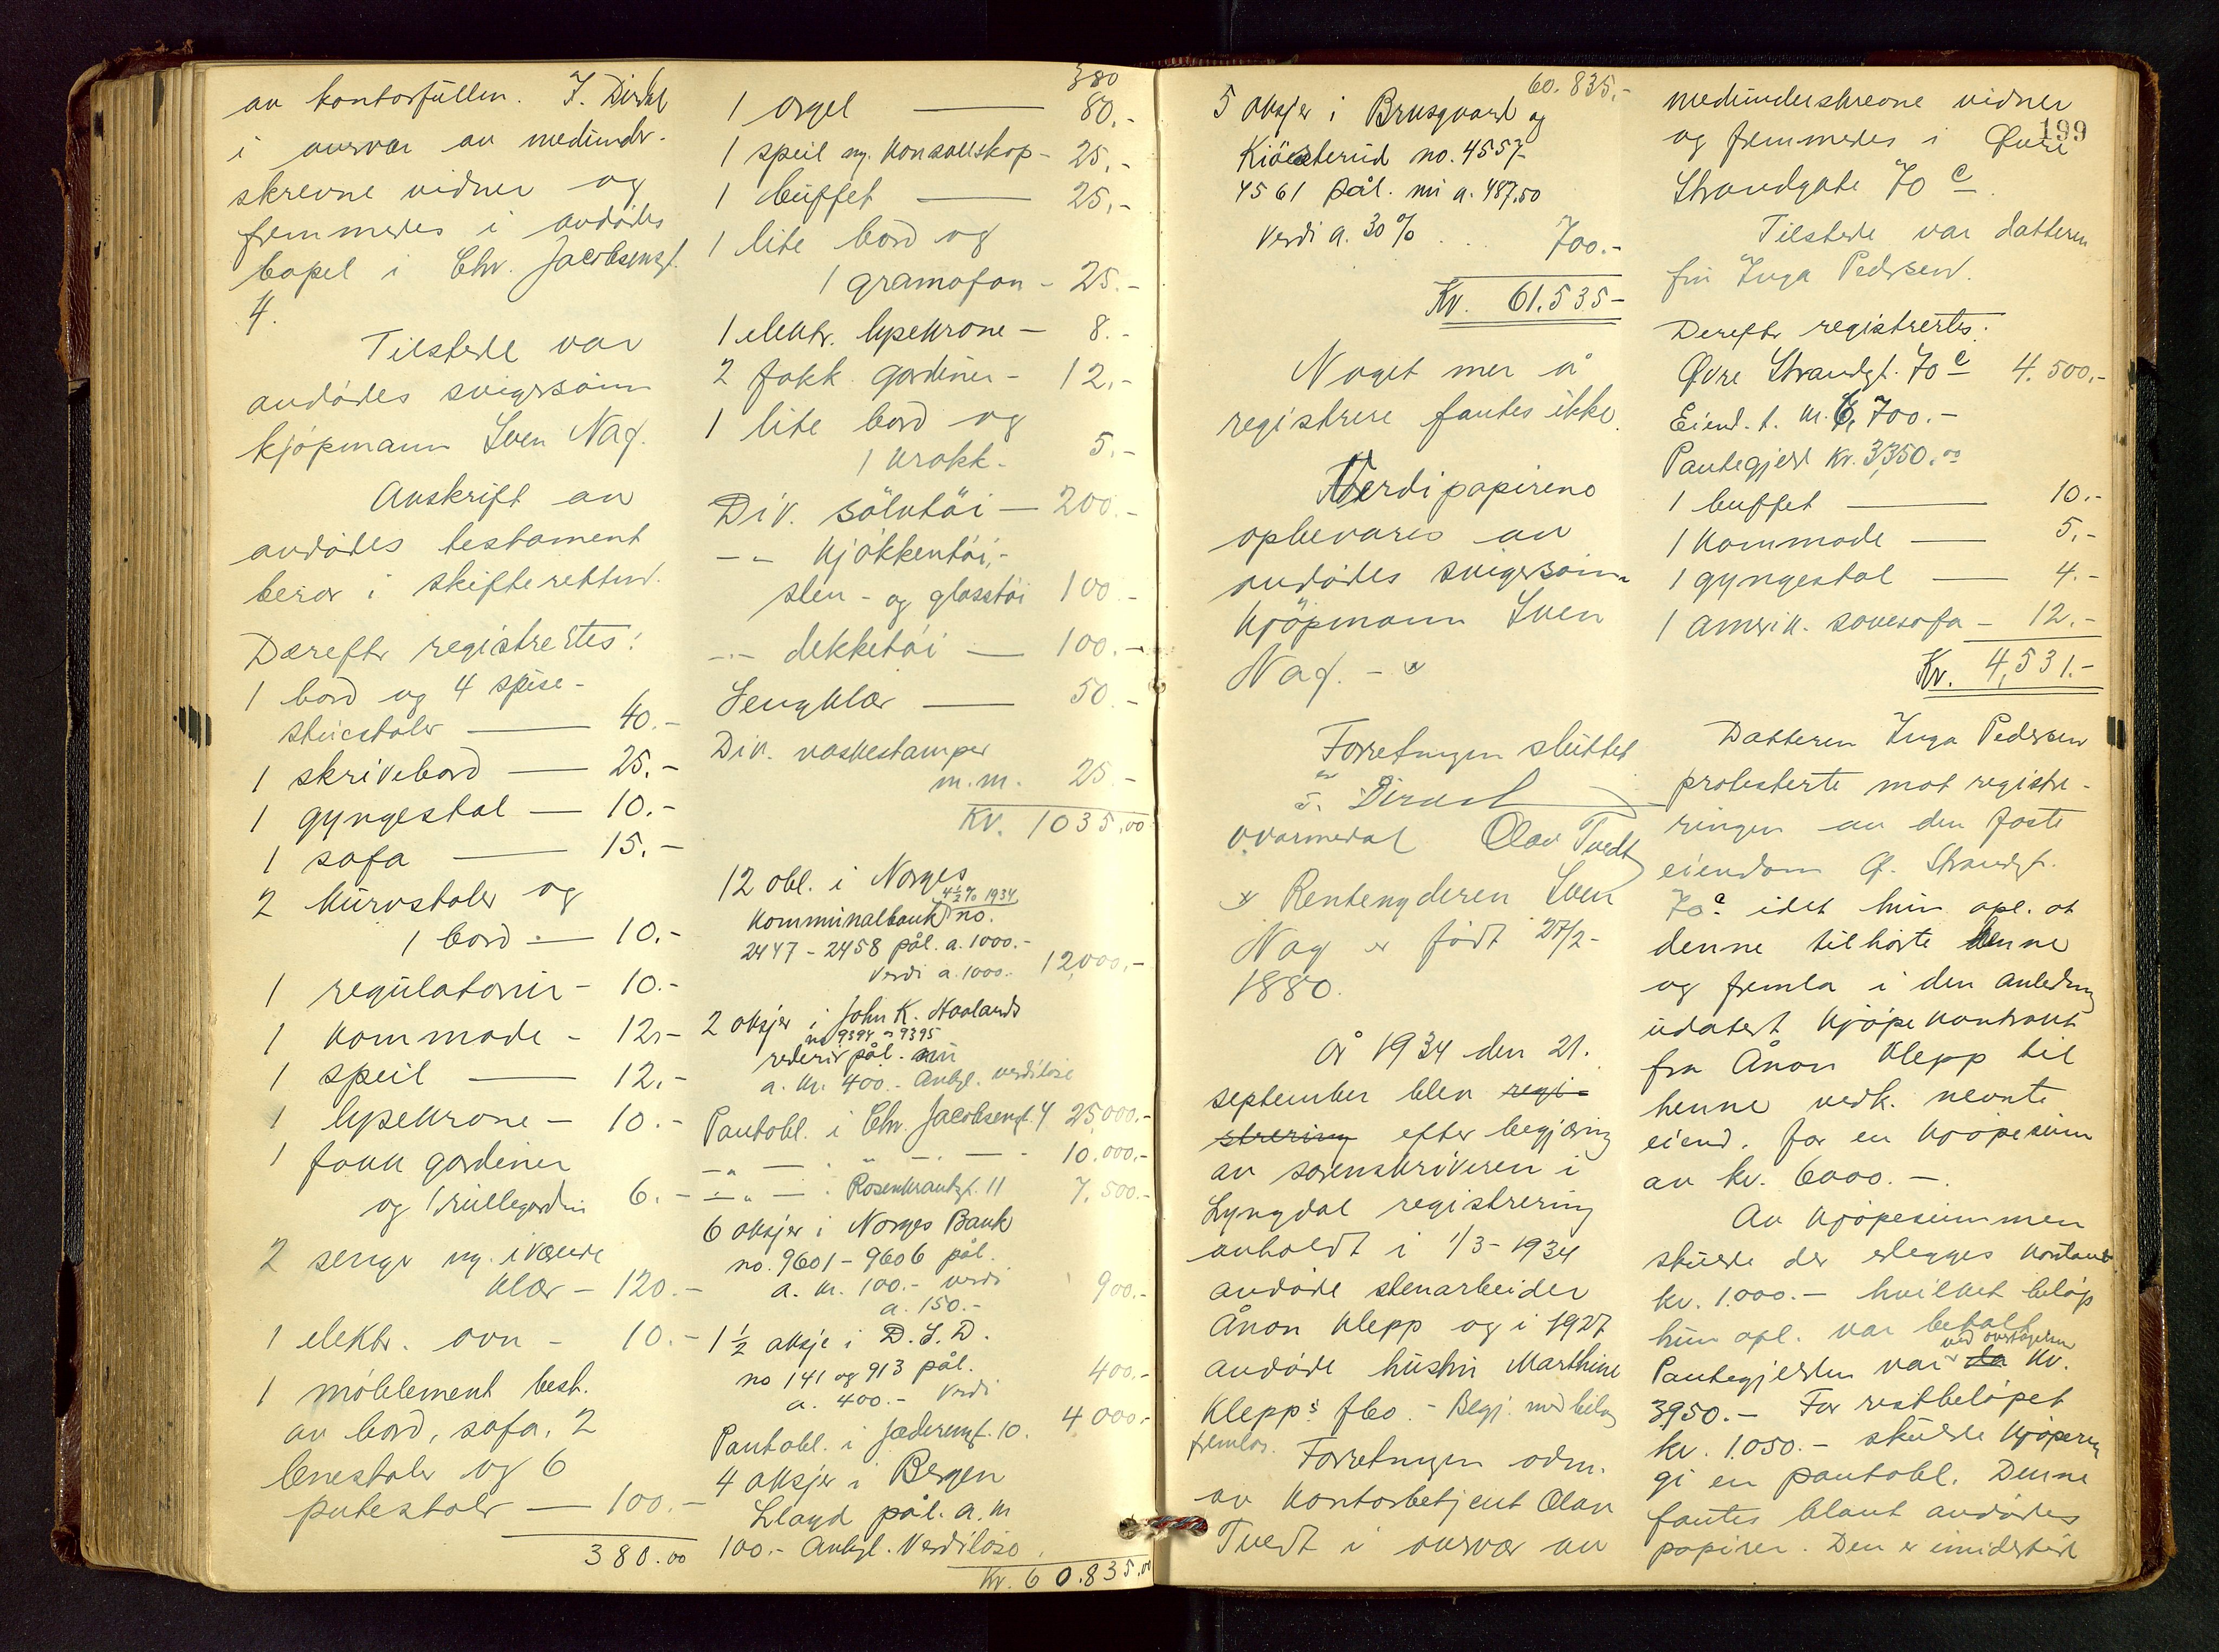 av kontorfullm. J. Dirdal
i overvær av medunder-
skrevne vidner og
fremmedes i avdødes
bopel i Chr. Jacobsensgt.
4.
Tilstede var
avdødes svigersønn
kjøpmann Sven Nag.
Avskrift av
avdødes testament
beror i skifteretten.
Derefter registrertes:
1 bord og 4 spise-
stuestoler — 40.-
1 skrivebord — 25.-
1 gyngestol — 10.-
1 sofa — 15.-
2 kurvstoler og
1 bord — 10.-
1 regulatorur - 10.-
1 kommode - 12.-
1 speil — 12.-
1 lysekrone - 10.-
1 fakk gardiner
og 1 rullegardin 6.-
2 senger m. iværende
klær - 120.-
1 elektr. ovn - 10.-
1 møblement best.
av bord, sofa, 2
lenestoler og 6
putestoler — 100.-
380.00
380
1 orgel — 80.-
1 speil m. konsollskap - 25.-
1 buffet — 25.-
1 lite bord og
1 gramofon - 25.-
1 elektr. lysekrone - 8.-
2 fakk gardiner - 12.-
1 lite bord og
1 krakk - 5.-
Div. sölvtöi — 200.-
-"- kjøkkentöi,
sten- og glasstöi 100.-
-"- dekketöi — 100.-
Sengklær — 50.-
Div. vaskestamper
m.m. 25.-
Kr. 1035,00
12 obl. i Norges
4½% 1934
Kommunalbank no.
2447 - 2458 pål. a. 1000.-
Verdi a. 1000.- 12,000.-
2 aksjer i John K. Haalands
no 9394 - 9395
rederi pål.
a. kr. 400.- Antgl. verdiløse
Pantobl. i Chr. Jacobsensgt. 4 25,000.-
-"- — " — - 10.000.-
-"- — . Rosenkrantzgt. 11 7,500.-
6 aksjer i Norges Bank
no. 9601 - 9606 pål.
a. kr. 100.- verdi
a. 150.- 900.-
1 ½ aksje i D. S. D.
no 141 og 913 pål.
a. 400.- Verdi 400.-
Pantobl. i Jæderengt. 10. 4,000.-
4 aksjer i Bergen
Lloyd pål. a. kr
100.- Antgl. Verdiløse.
Kr. 60.835,00
60.835,-
5 aksjer i Brusgaard og
Kiösterud no. 4557-
4561 pål. nu a. 487,50
Verdi a. 30% . . 700.-
Kr. 61.535-
Noget mer å
registrere fantes ikke.
Verdipapirene
opbevares av
avdødes svigersønn
kjøpmann Sven
Nag. - x
Forretningen sluttet
J. Dirdal
ovarmedal Olav Tvedt
x Rentenyderen Sven
Nag er født 27/2-
1880.
År 1934 den 21.
september blev regi-
strering efter begjæring
av sorenskriveren i
Lyngdal registrering
avholdt i 1/3 - 1934
avdøde stenarbeider
Ånon Klepp og i 1927
avdøde hustru Marthine
Klepps fbo. - Begj. med bilag
fremlas.
Forretningen adm.
av kontorbetjent Olav
Tvedt i overvær av
199
medunderskrevne vidner
og fremmedes i Øvre
Strandgate 70 c.
Tilstede var datteren
fru Inga Pedersen.
Derefter registrertes:
Øvre Strandgt. 70 c 4.500,-
Eiend. t. kr. 6,700.-
Pantegjeld kr. 3,350.00
1 buffet — 10.-
1 kommode — 5.-
1 gyngestol — 4.-
1 amerik. sovesofa - 12.-
Kr. 4,531.-
Datteren Inga Pedersen
protesterte mot registre-
ringen av den faste
eiendom Ø. Strandgt.
70 c idet hun opl. at
denne tilhørte henne
og fremla i den anledning
udatert kjøpekontrakt
fra Ånon Klepp til
henne vedk. nevnte
eiend. for en kjøpesum
av kr. 6000.-.
Av kjøpesummen
skulde der erlegges kontant
kr. 1.000.- hvilket beløp
hun opl. var betalt.
ved overtagelsen
Pantegjelden var da kr.
3950.- For restbeløpet
kr. 1.050.- skulde kjøperen
gi en pantobl. Denne
fantes blant avdødes
papirer. Den er imidlertid